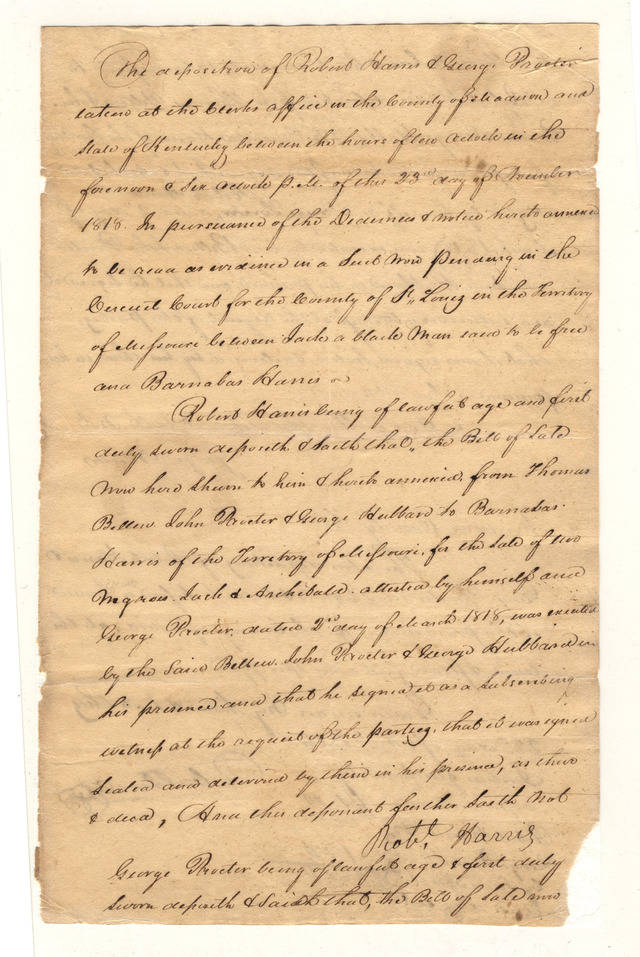 The deposition of Robert Harris & George Procter
taken at the Clerks office in the County of Madison and
State of Kentucky between the hours of ten oclock in the
forenoon & Six oclock P.M. of this 23rd day of November
1818. In pursuance of the Dedemus & notice hereto annexed
to be read as evidence in a Suit now pending in the
Circuit Court for the County of St. Louis in the Territory
of Missouri between Jack a black man said to be free
and Barnabas Harris
Robert Harris being of lawful age and first
duly sworn deposeth & saith that, the Bill of Sale
now here shewn to him & hereto annexed, from Thomas
Bellew John Procter & George Hubbard to Barnabas
Harris of the Territory of Missouri, for the Sale of two
Negroes Jack & Archibald. attested by himself and
George Procter. dated 2nd day of March 1818, was executed
by the Said Bellew. John Procter & George Hubbard in
his presence and that he signed it as a Subscribing
witness at the request of the parties, that it was signed
Sealed and delivered by them in his presence, as their
& deed, And this deponant further Saith Not
Robt. Harris
George Procter being of lawful age & first duly
Sworn deposeth & Saith that, the Bill of Sale now